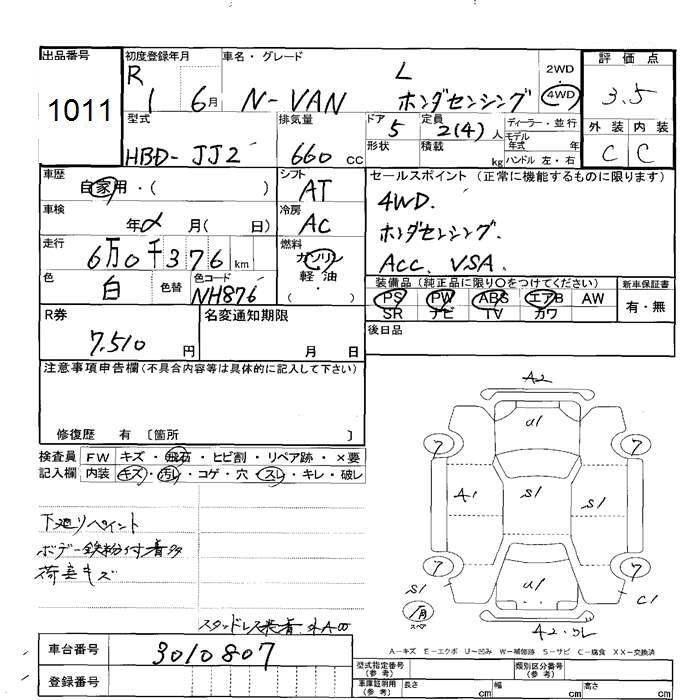 出品番号
1011
初度登録年月
R 1 6月
車名・グレード
L
N-VAN ホンダセンシング
2WD
・
4WD
評価点
3.5
外装 内装
C C
型式
HBD-JJ2
排気量
660 cc
ドア
5
定員
2(4)人
形状
積載
kg
ディーラー・並行
モデル
年式 年
ハンドル 左・右
車歴
自家用・( )
シフト
AT
車検
年 月( 日)
冷房
AC
走行
6万0千376 km
燃料
ガソリン
軽・油
( )
色
白
色替
色コード
NH876
セールスポイント (正常に機能するものに限ります)
4WD.
ホンダセンシング.
ACC. VSA.
装備品(純正品に限り○をつけてください)
PS PW ABS エアB AW
SR ナビ TV カワ
新車保証書
有・無
R券
7,510 円
名変通知期限
月 日
後日品
注意事項申告欄(不具合内容等は具体的に記入して下さい)
修復歴 有 〔箇所 〕
検査員
記入欄
FW キズ・飛石・ヒビ割・リペア跡・×要
内装 キズ・汚レ・コゲ・穴・スレ・キレ・破レ
下廻りペイント
ボデー鉄粉付着多
荷室キズ
スタッドレス装着
A2
U1
7 7
A1 S1 S1
7 7
U1
S1
C1
スペア
A2
A-キズ E-エクボ U-凹み W-補修跡 S-サビ C-腐食 XX-交換済
車台番号
3010807
登録番号
型式指定番号
(参考)
類別区分番号
(参考)
車庫証明用
(参考)
長さ cm 幅 cm 高さ cm